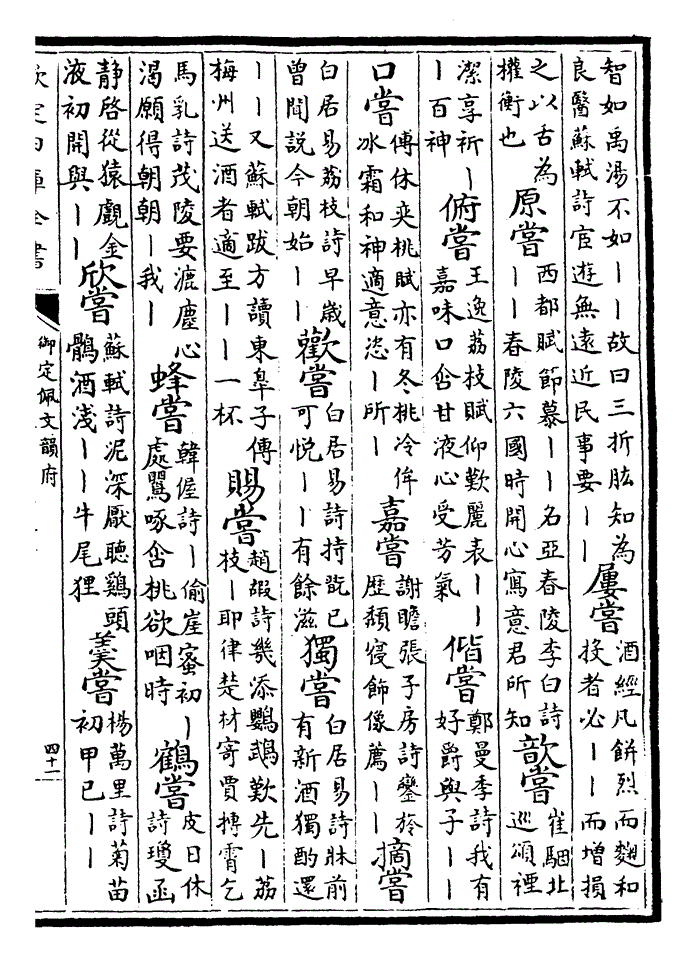 智如禹湯不如丨丨故曰三折肱知為良醫蘇軾詩宦遊無遠近民事要丨丨屢嘗酒經凡餅烈而麴和投者必丨丨而增損
之以舌為權衡也原嘗西都賦節慕丨丨名亞春陵李白詩丨丨春陵六國時開心寫意君所知歆嘗崔駰北巡頌禋
潔享祈丨丨百神俯嘗王逸荔枝賦仰歎麗表丨丨嘉味口含甘液心受芳氣偕嘗鄭曼季詩我有好爵與子丨丨
口嘗傅休奕桃賦亦有冬桃冷侔冰霜和神適意恣丨所丨嘉嘗謝瞻張子房詩鑾旂歷頹寢飾像薦丨丨摘嘗
白居易荔枝詩早歲曾聞說今朝始丨丨歡嘗白居易詩持翫已可悅丨丨有餘滋獨嘗白居易詩牀前有新酒獨酌還
丨丨又蘇軾跋方讀東臯子傳梅州送酒者適至丨丨一杯賜嘗趙嘏詩幾添鸚鵡歎先丨荔枝丨耶律楚材寄賈摶霄乞
馬乳詩茂陵要漉塵心渴願得朝朝丨我丨蜂嘗韓偓詩丨偷崖蜜初丨處鶯啄含桃欲咽時鶴嘗皮日休詩瓊函
静啓從猿覷金液初開與丨丨欣嘗蘇軾詩泥深厭聽鷄頭鶻酒淺丨丨牛尾狸羹嘗楊萬里詩菊苗初甲已丨丨
欽定四庫全書
御定佩文韻府
四十一